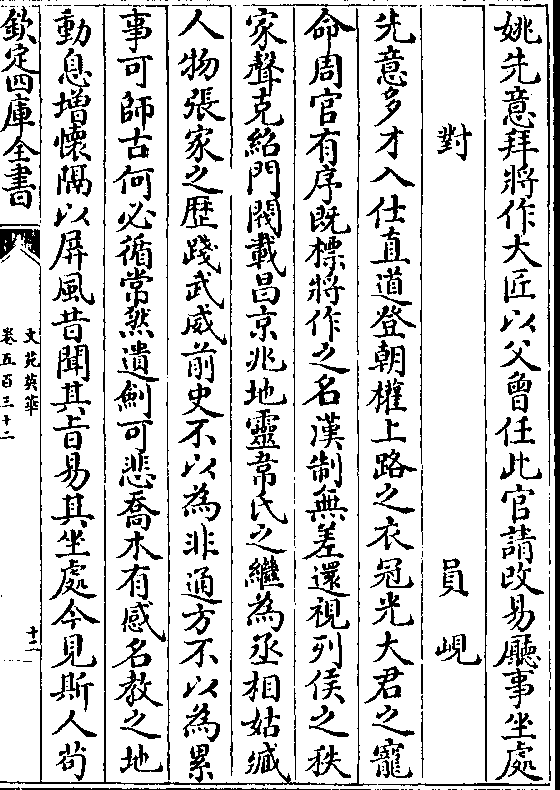 姚先意拜將作大匠以父曾任此官請改易廳事坐處
對　員峴
先意多才入仕直道登朝權上路之衣冠光大君之寵
命周官有序既標將作之名漢制無差還視列侯之秩
家聲克紹門閥載昌京兆地靈韋氏之繼為丞相姑臧
人物張家之歴踐武威前史不以為非通方不以為累
事可師古何必循常然遺劍可悲喬木有感名教之地
動息增懷隔以屏風昔聞其㫖易其坐處今見斯人苟
欽定四庫全書
文苑英華
卷五百三十二
十二